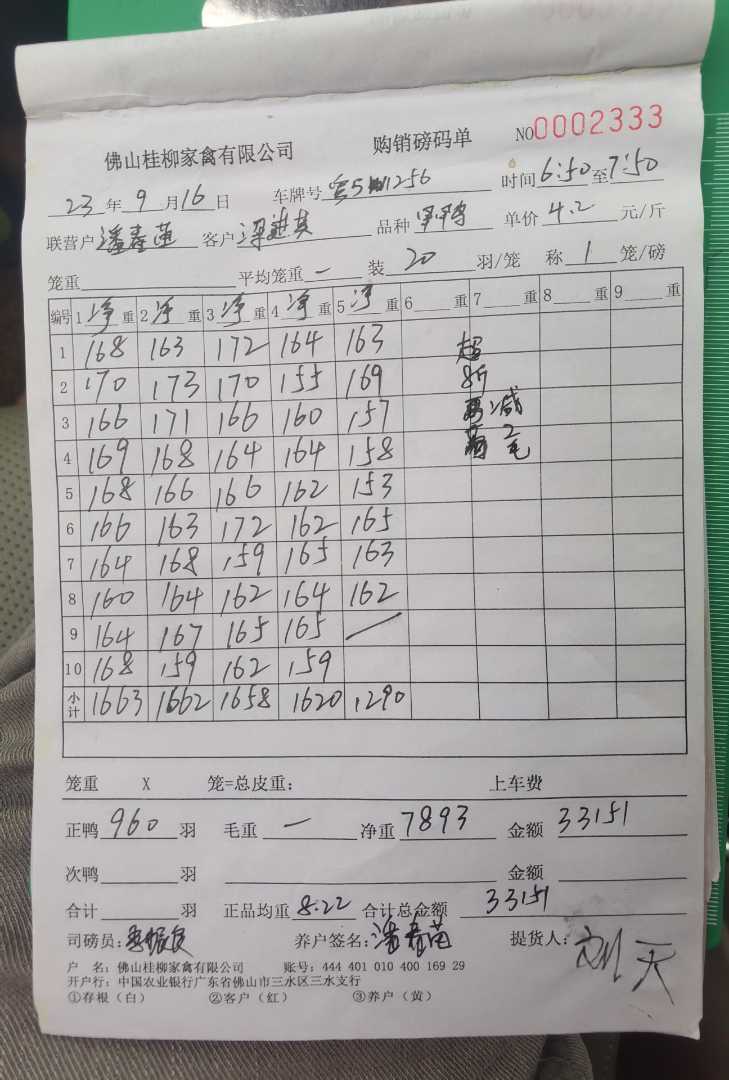 佛山桂柳家禽有限公司 购销磅码单 NO0002333
23年9月16日 车牌号 1256 时间6:50至7:50
联营户潘春苗 客户梁进其 品种 单价4.2元/斤
笼重 平均笼重— 装20羽/笼 称1笼/磅
编号 1净重 2净重 3净重 4净重 5净重 6重 7重 8重 9重
1 168 163 172 164 163 超
2 170 173 170 155 169 8斤
3 166 171 166 160 157 减
4 169 168 164 164 158 2毛
5 168 166 166 162 153
6 166 163 172 162 165
7 164 168 159 165 163
8 160 164 162 164 162
9 164 167 165 165 —
10 168 159 162 159
小计 1663 1662 1658 1620 1290
笼重 X 笼=总皮重: 上车费
正鸭960羽 毛重— 净重7893 金额33151
次鸭 羽 金额
合计 羽 正品均重8.22 合计总金额33151
司磅员: 养户签名:潘春苗 提货人:
户 名:佛山桂柳家禽有限公司 账号:444 401 010 400 169 29
开户行:中国农业银行广东省佛山市三水区三水支行
①存根(白) ②客户(红) ③养户(黄)